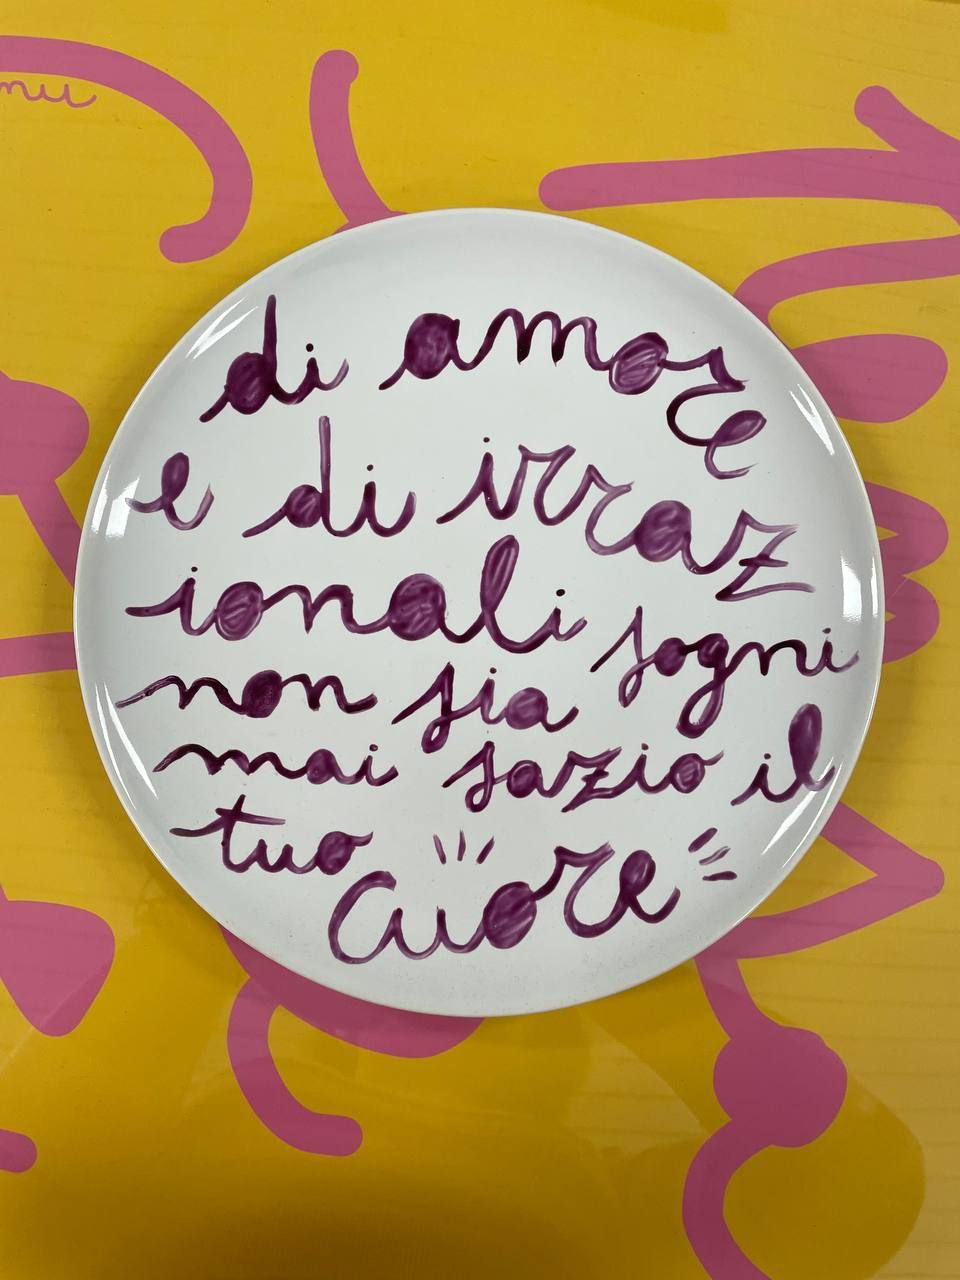 nu
di amore
e di irraz
ionali sogni
non sia
mai sazio il
tuo
cuore